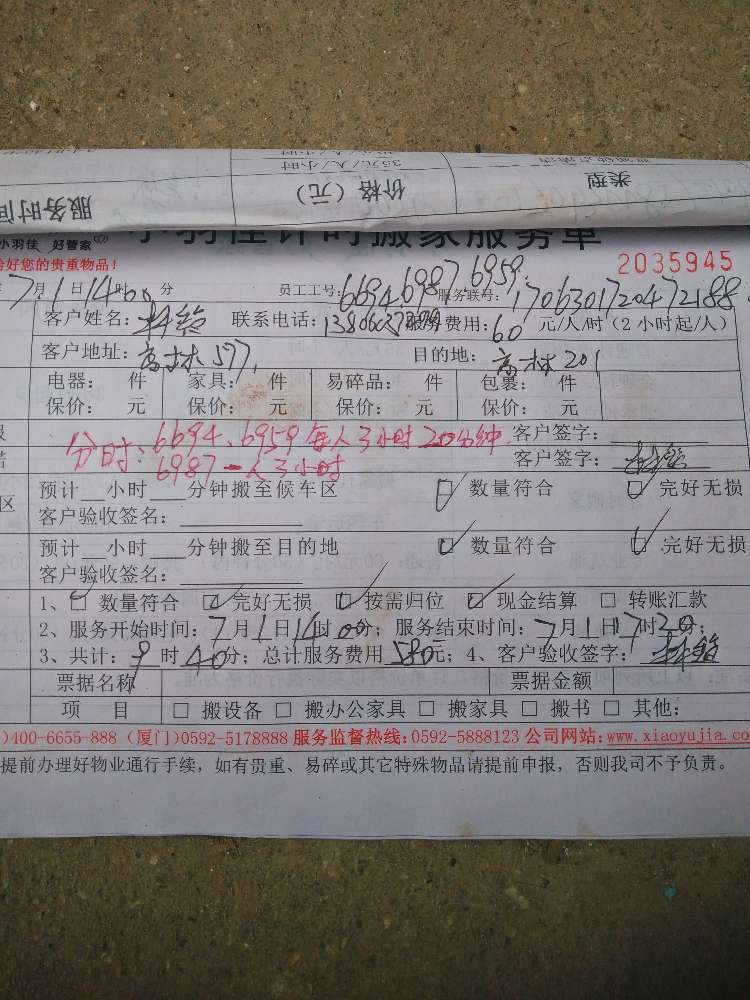 35元/人/小时
类型
价格（元）
服务时间
小羽佳 好管家
小羽佳计时搬家服务单
好您的贵重物品！
2035945
7月1日14时00分 员工工号：6694、6987、6959 服务联号：
客户姓名： 联系电话： 服务费用：60元/人/时（2小时起/人）
客户地址：高林577, 目的地：高林201
电器： 件 家具： 件 易碎品： 件 包裹： 件
保价： 元 保价： 元 保价： 元 保价： 元
分时：6694、6959每人3小时20分钟
客户签字：
6987一人3小时
客户签字：
预计__小时___分钟搬至候车区 □ 数量符合 □ 完好无损
客户验收签名：
预计__小时___分钟搬至目的地 □ 数量符合 □ 完好无损
客户验收签名：
1、□ 数量符合 □ 完好无损 □ 按需归位 □ 现金结算 □ 转账汇款
2、服务开始时间：7月1日14时00分；服务结束时间：7月1日17时20分；
3、共计：9时40分；总计服务费用580元；4、客户验收签字：
票据名称 票据金额
项 目 □ 搬设备 □ 搬办公家具 □ 搬家具 □ 搬书 □ 其他：
)400-6655-888 (厦门)0592-5178888 服务监督热线:0592-5888123 公司网站:www.xiaoyujia.com
提前办理好物业通行手续，如有贵重、易碎或其它特殊物品请提前申报，否则我司不予负责。